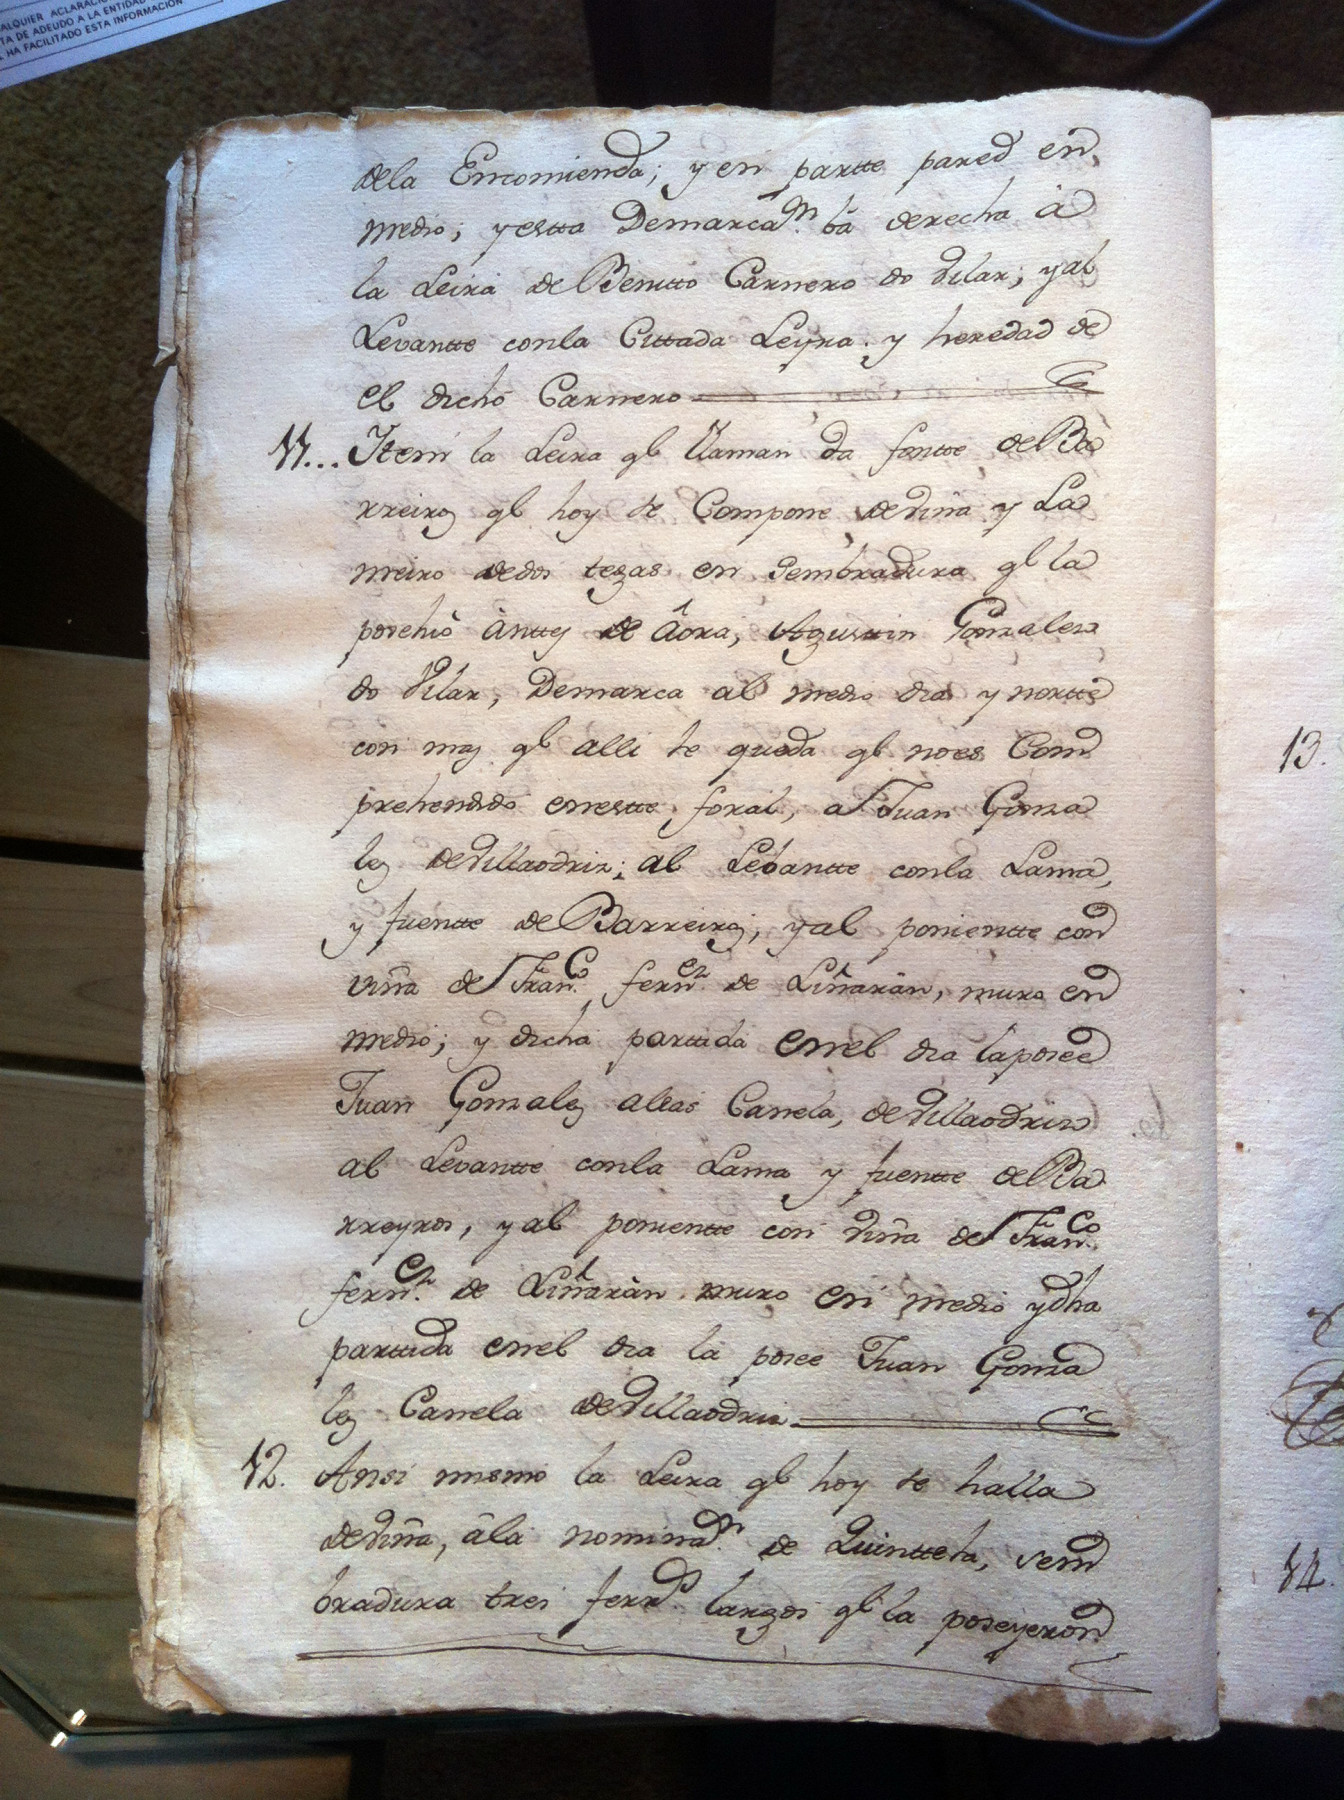 ALQUIER ACLARACIÓ
TA DE ADEUDO A LA ENTIDAD
HA FACILITADO ESTA INFORMACIÓN
dela Encomienda; y en partte pared en
medio; y estta Demarcaon. bá derecha á
la Leira de Benitto Carnero do Vilar; y al
Levantte conla Cittada Leyra. y heredad de
el dicho Carnero
11... Ittem la Leira qe llaman da fontte de Ba
rreiros qe hoy se Compone deviña y La
meiro dedos tegas en Sembradura qe la
posehió Anttes de Aora, Agusttin Gonzalez
do Vilar, Demarca al medio dia y nortte
con mas qe alli le queda qe noes Com
prehendido enestte foral, a Juan Gonza
les deVillaodriz; al Lebantte conla Lama,
y fuentte de Barreiros, y al ponientte con
viña de Franco. fernez. de Liñarán, muro en
medio; y dicha parttida enel dia laposee
Juan Gonzales alias Canela, deVillaodriz
al Levantte conla Lama y fuentte de Ba
rreyros, y al ponientte con Viña de Franco.
fernez. de Liñarán muro en medio ydha
parttida enel dia la posee Juan Gonza
les Canela deVillaodriz
12. Ansi mismo la Leira qe hoy se halla
deViña, ála nominaon. de Quinttela, sem
bradura tres ferrdos. largos qe la poseyeron
13.
14.